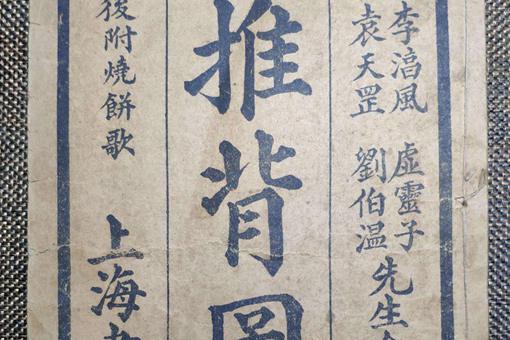 李湻風 虛靈子
袁天罡 劉伯温
先生
推背圖
後附燒餅歌 上海